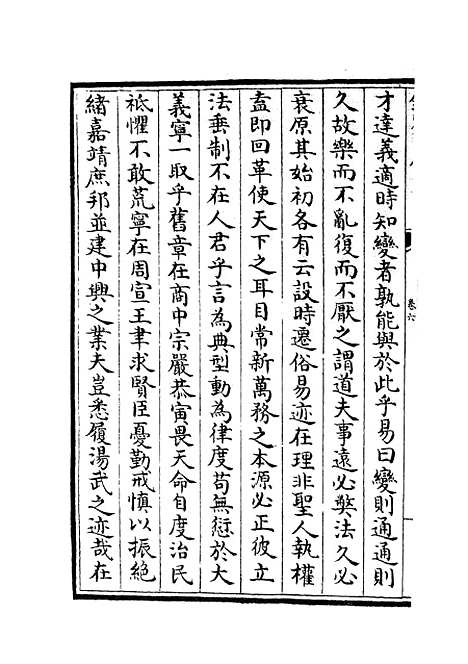 才達義適時知變者孰能與於此乎易曰變則通通則
久故樂而不亂復而不厭之謂道夫事遠必獘法久必
衰原其始初各有云設時遷俗易迹在理非聖人執權
盍即回革使天下之耳目常新萬務之本源必正彼立
法垂制不在人君乎言為典型動為律度苟無愆於大
義寧一取乎舊章在商中宗嚴恭寅畏天命自度治民
祗懼不敢荒寧在周宣王聿求賢臣憂勤戒慎以振絶
緒嘉靖庶邦並建中興之業夫豈悉履湯武之迹哉在
卷六